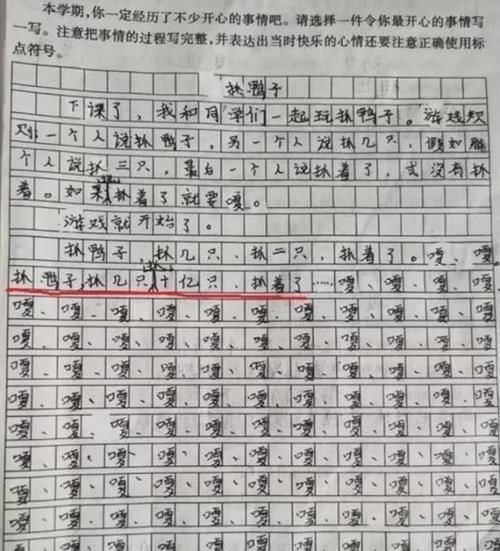 本学期,你一定经历了不少开心的事情吧。请选择一件令你最开心的事情写
一写。注意把事情的过程写完整,并表达出当时快乐的心情还要注意正确使用标
点符号。
抓鸭子
下课了,我和同学们一起玩抓鸭子。游戏规
则:一个人说抓鸭子,另一个人说抓几只,假如那
个人说抓三只,最后一个人说抓着了,或没有抓
着。如果抓着了就要嘎。
游戏就开始了。
抓鸭子,抓几只.抓二只,抓着了。嘎、嘎。
抓鸭子,抓几只,抓十亿只.抓着了……嘎、嘎、嘎、嘎、
嘎、嘎、嘎、嘎、嘎、嘎、嘎、嘎、嘎、嘎、
嘎、嘎、嘎、嘎、嘎、嘎、嘎、嘎、嘎、嘎、
嘎、嘎、嘎、嘎、嘎、嘎、嘎、嘎、嘎、嘎、
嘎、嘎、嘎、嘎、嘎、嘎、嘎、嘎、嘎、嘎、
嘎、嘎、嘎、嘎、嘎、嘎、嘎、嘎、嘎、嘎、
嘎、嘎、嘎、嘎、嘎、嘎、嘎、嘎、嘎、嘎、
嘎、嘎、嘎、嘎、嘎、嘎、嘎、嘎、嘎、嘎
嘎、嘎、嘎、嘎、嘎、嘎、嘎、嘎、嘎、嘎